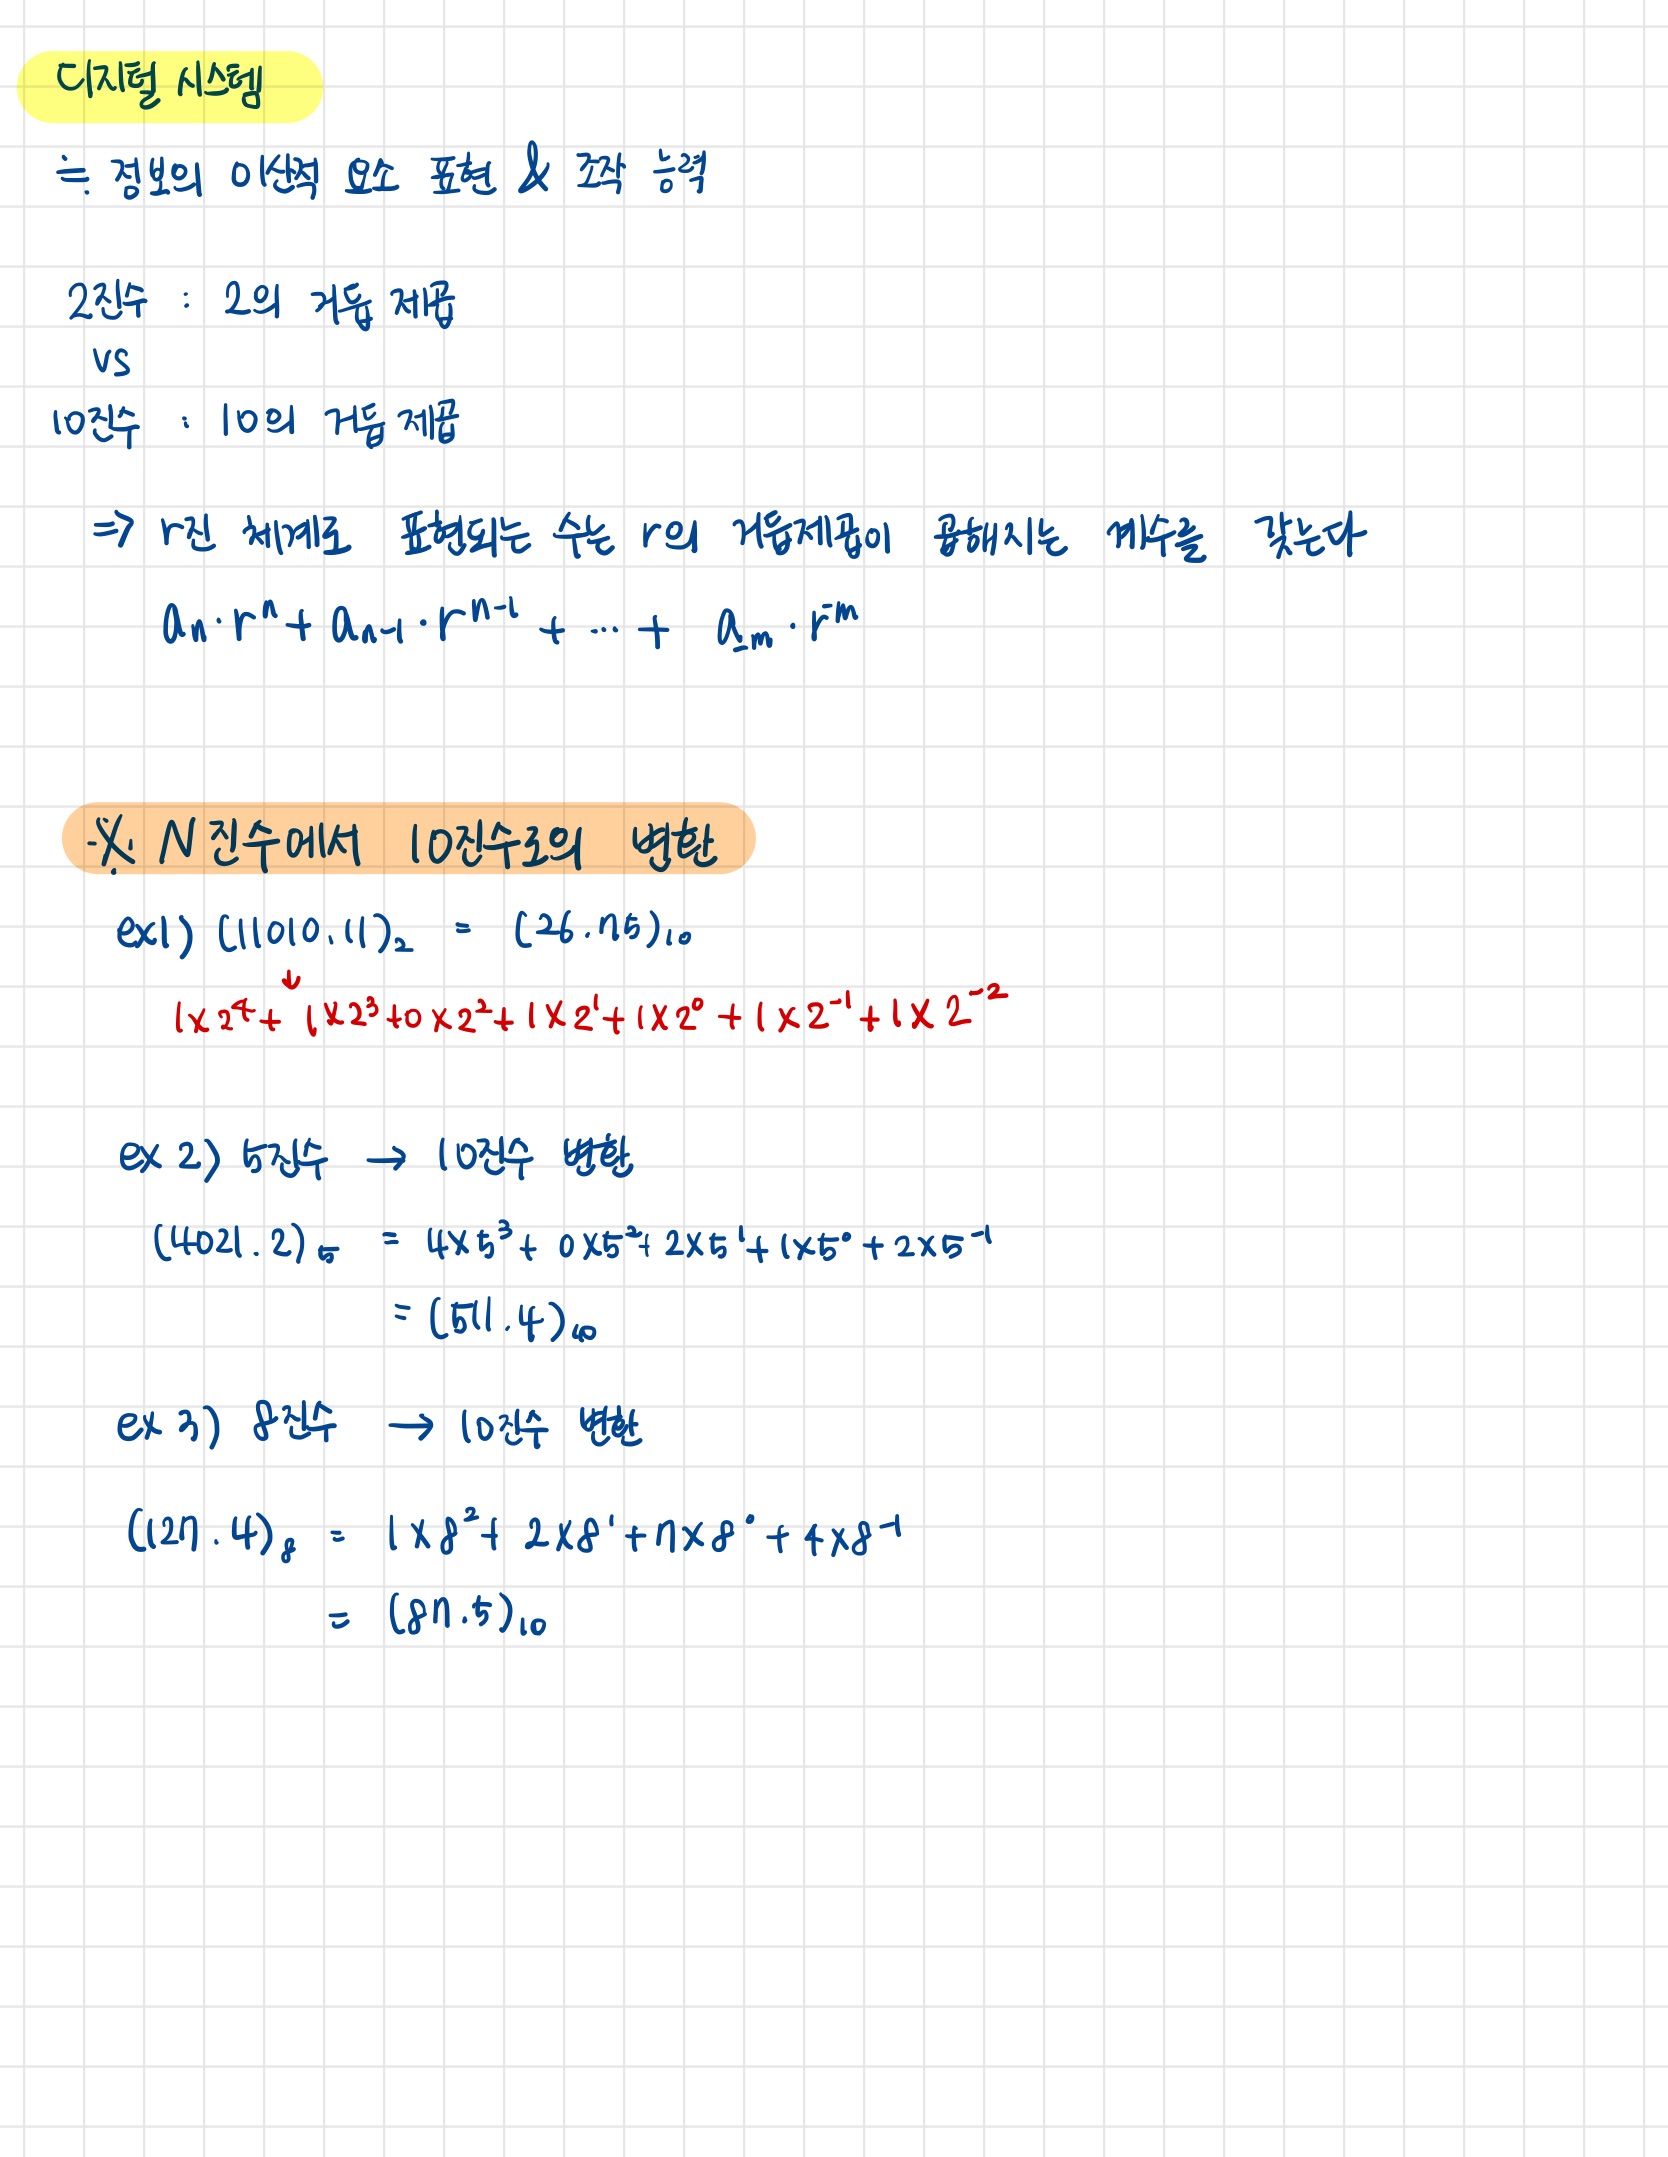 디지털 시스템
≒ 정보의 이산적 요소 표현 & 조작 능력
2진수 : 2의 거듭 제곱
vs
10진수 : 10의 거듭 제곱
⇒ r진 체계로 표현되는 수는 r의 거듭제곱이 곱해지는 계수를 갖는다
aₙ·rⁿ + aₙ₋₁·rⁿ⁻¹ + ⋯ + a₋ₘ·r⁻ᵐ
※ N진수에서 10진수로의 변환
ex1) (11010.11)₂ = (26.75)₁₀
↓
1×2⁴ + 1×2³ + 0×2² + 1×2¹ + 1×2⁰ + 1×2⁻¹ + 1×2⁻²
ex 2) 5진수 → 10진수 변환
(4021.2)₅ = 4×5³ + 0×5² + 2×5¹ + 1×5⁰ + 2×5⁻¹
= (511.4)₁₀
ex 3) 8진수 → 10진수 변환
(127.4)₈ = 1×8² + 2×8¹ + 7×8⁰ + 4×8⁻¹
= (87.5)₁₀